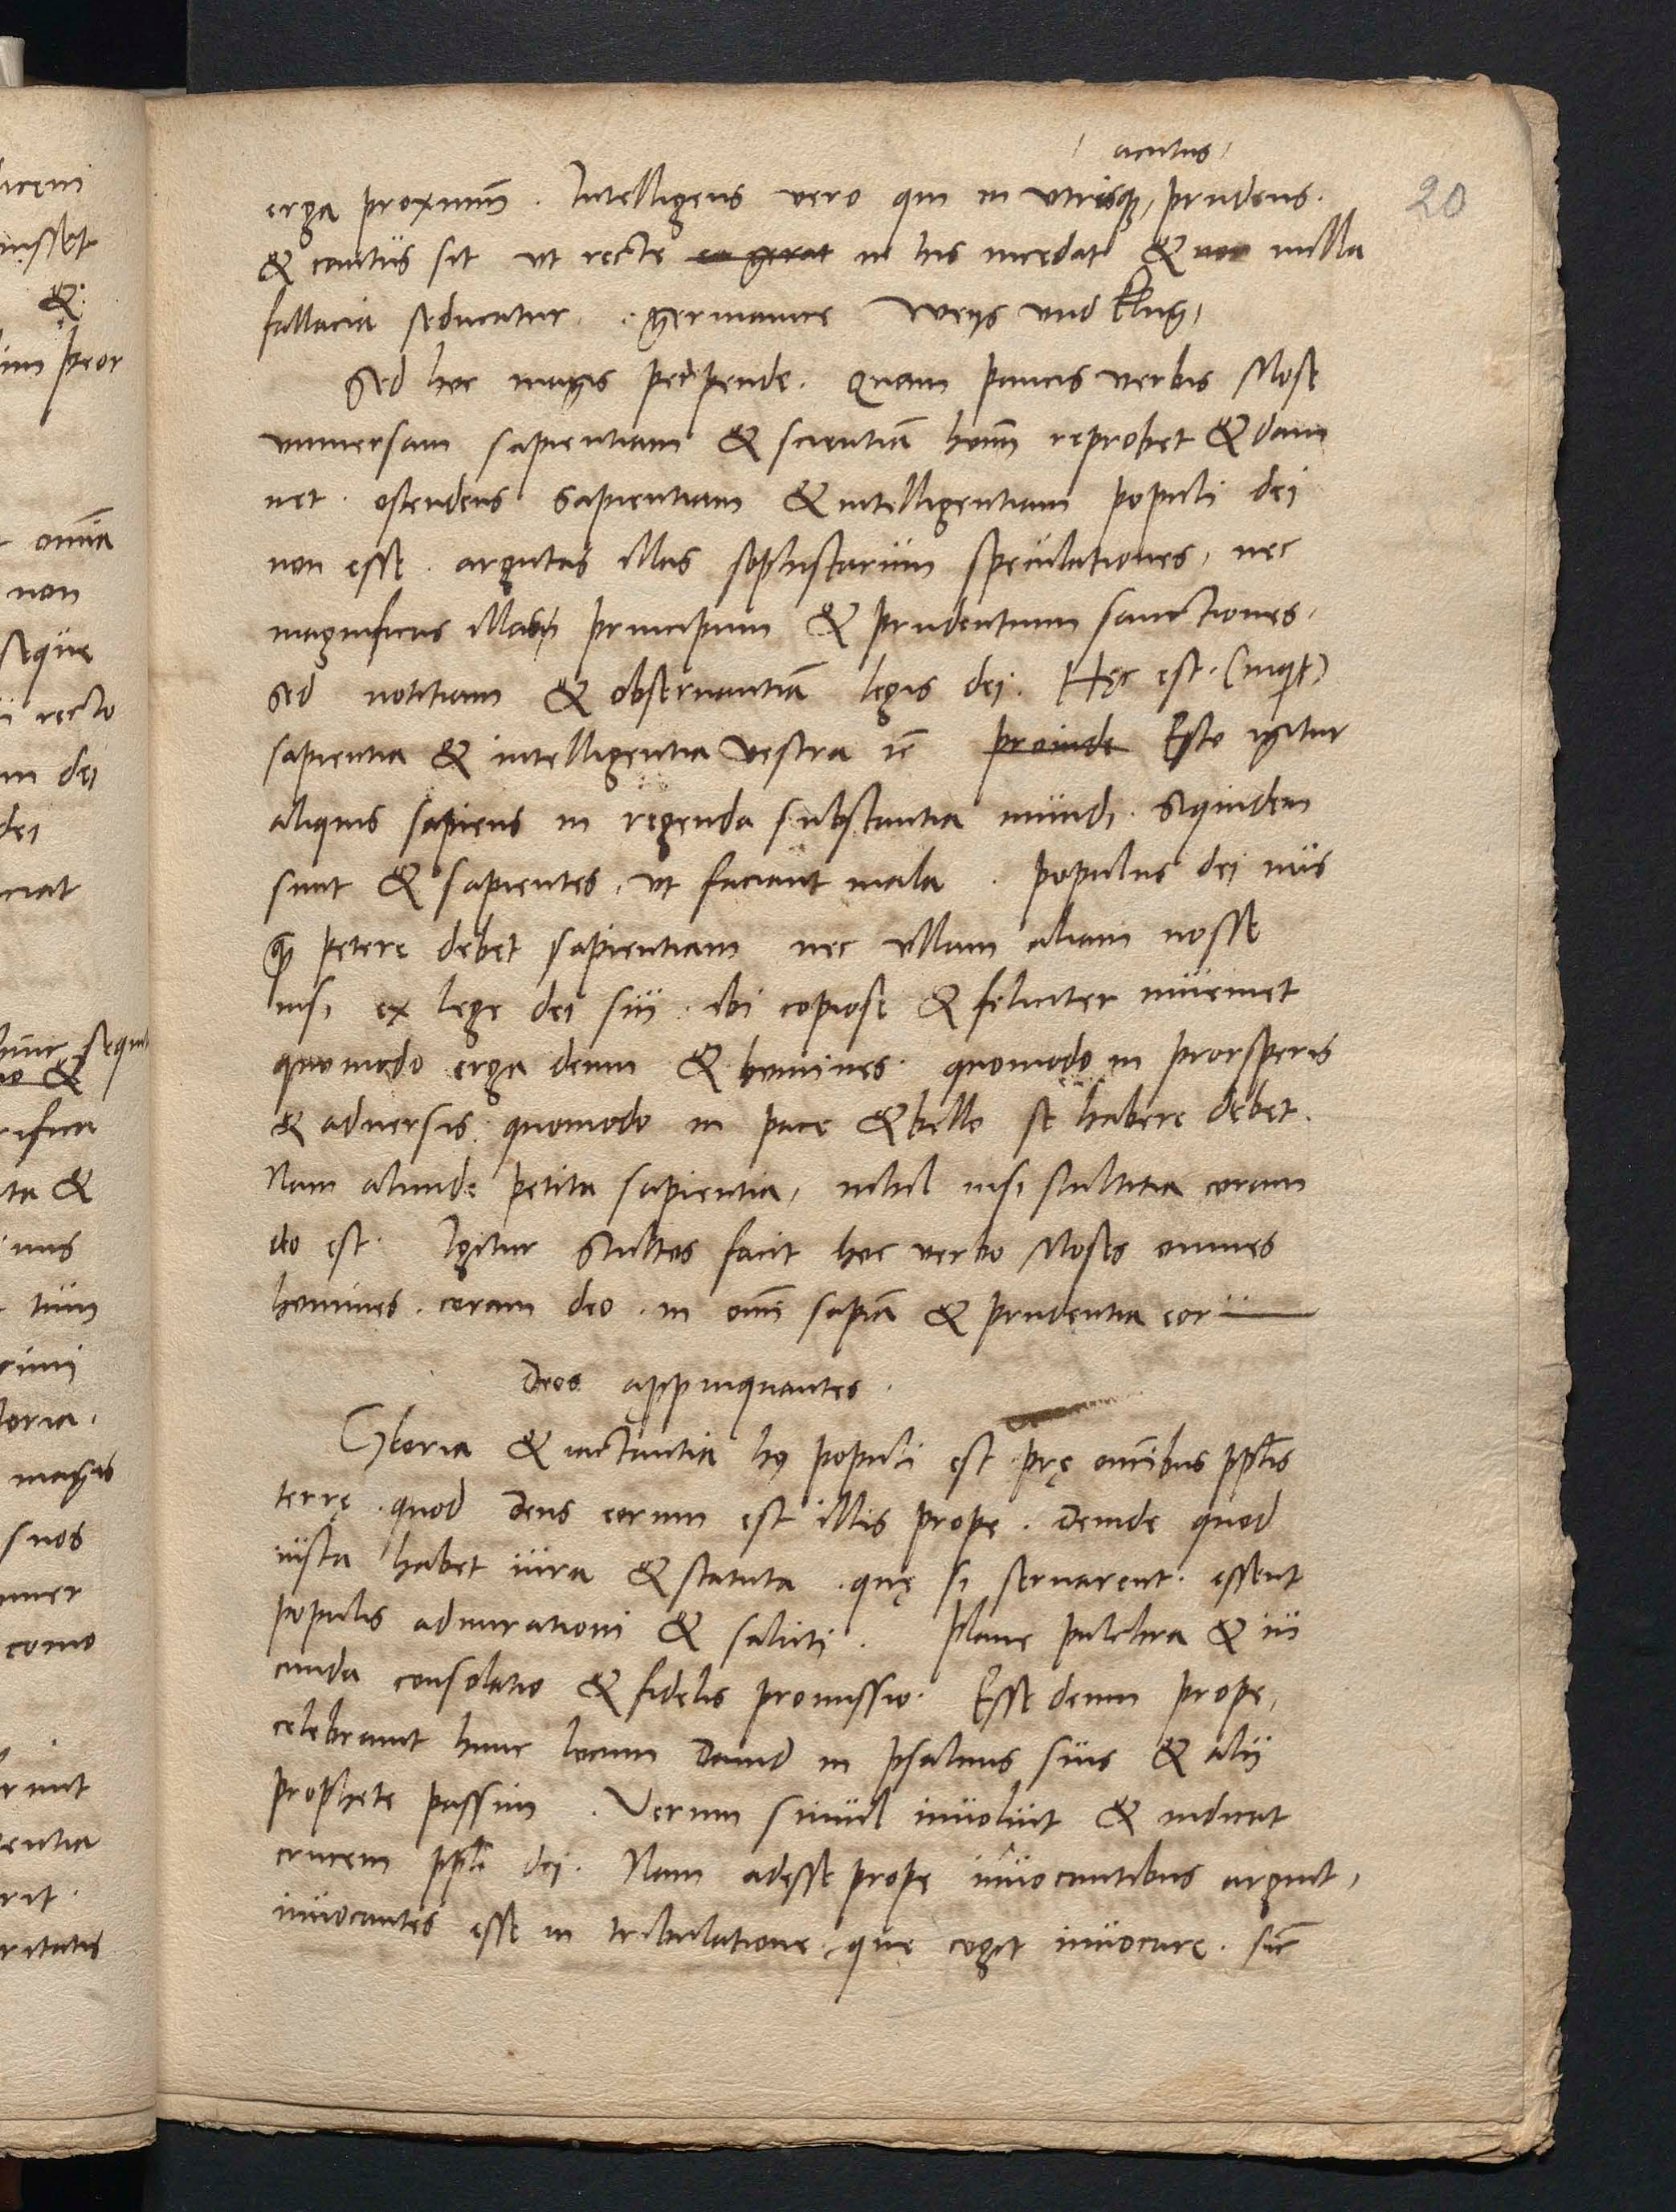 acutus,
20
erga proximū. Intelligens vero qui in vtrisque, prudens.
& cautus sit vt recte ea gerat in his incedat & non nulla
fallacia seducatur. germanice weys vnd klug,
Sed hoc magis perpende. Quam paucis verbis Mose
vniuersam sapientiam & scientiā homī reprobet & dam
net. ostendens sapientiam & intelligentiam populi dei
non esse. argutas illas sophistarum speculationes, nec
magnificas illas principum & prudentium sanctiones.
sed notitiam & obseruantiā legis dei. Hęc est. (inquit)
sapientia & intelligentia vestra ꝛc̄ proinde Esto igitur
aliquis sapiens in regenda substantia mundi. siquidem
sunt & sapientes, vt faciant mala. populus dei nus
quā petere debet sapientiam nec vllam aliam nosse
nisi ex lege dei sui. ibi copiose & feliciter inueniet
quomodo erga deum & homines. quomodo in prorsperis
& aduersis: quomodo in pace & bello se habere debet.
Nam aliunde petita sapientia, nihil nisi stultitia coram
deo est. Igitur stultos facit hoc verbo Moses omnes
homines. coram deo. in omī sapiā & prudentia eorū
Deos appinquantes.
Gloria & iactantia huius populi est prę omībus pplis
terrę. quod Deus eorum est illis prope. Deinde quod
iusta habet iura & statuta. quę si seruarent. essent
populis admirationi & saluti. Plane pulchra & iu
cunda consolatio & fidelis promissio. Esse deum prope,
celebrauit hunc locum Dauid in psalmis suis & alii
prophete passim. Verum simul inuoluit & indicat
crucem ppli dei. Nam adesse prope inuocantibus arguit,
inuocantes esse in tribulatione, que cogit inuocare. sic̄